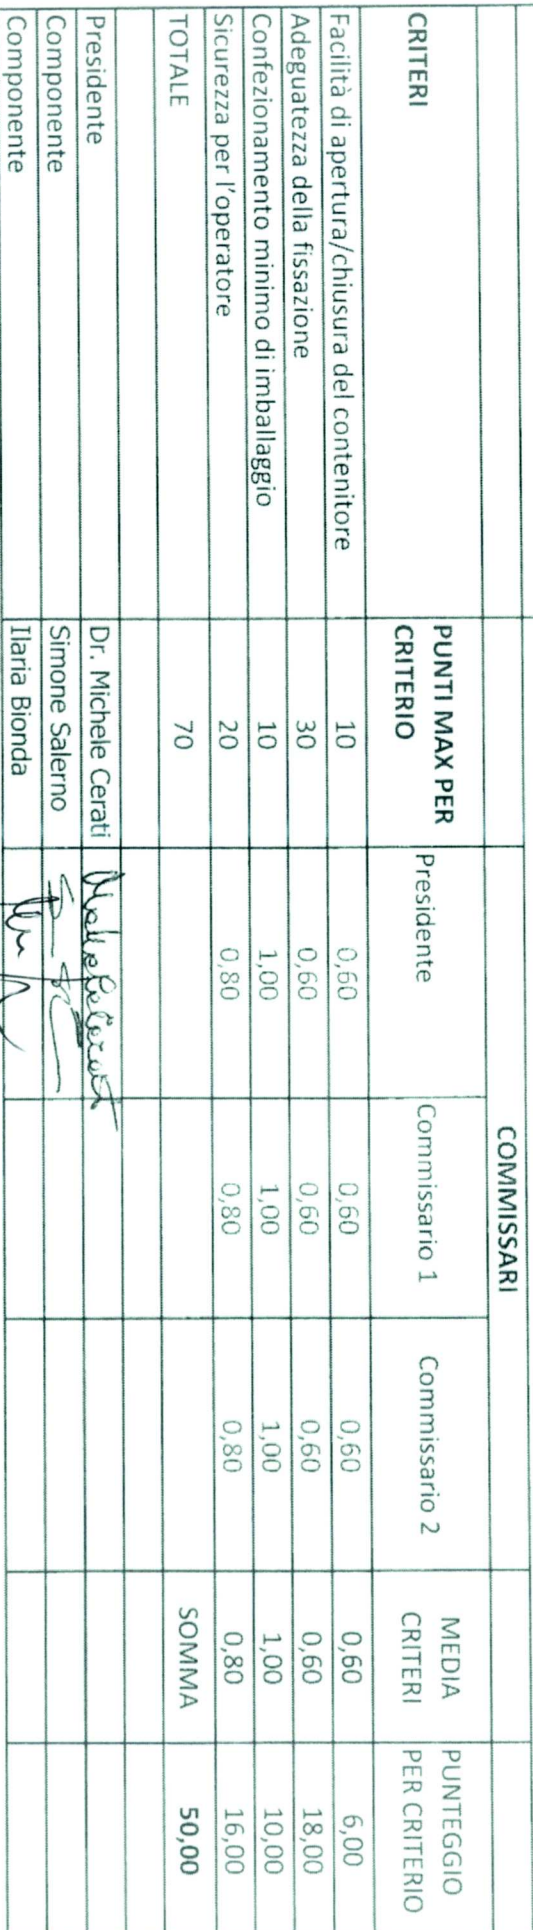 COMMISSARI
CRITERI PUNTI MAX PER CRITERIO Presidente Commissario 1 Commissario 2 MEDIA CRITERI PUNTEGGIO PER CRITERIO
Facilità di apertura/chiusura del contenitore 10 0,60 0,60 0,60 0,60 6,00
Adeguatezza della fissazione 30 0,60 0,60 0,60 0,60 18,00
Confezionamento minimo di imballaggio 10 1,00 1,00 1,00 1,00 10,00
Sicurezza per l'operatore 20 0,80 0,80 0,80 0,80 16,00
TOTALE 70 SOMMA 50,00
Presidente Dr. Michele Cerati
Componente Simone Salerno
Componente Ilaria Bionda